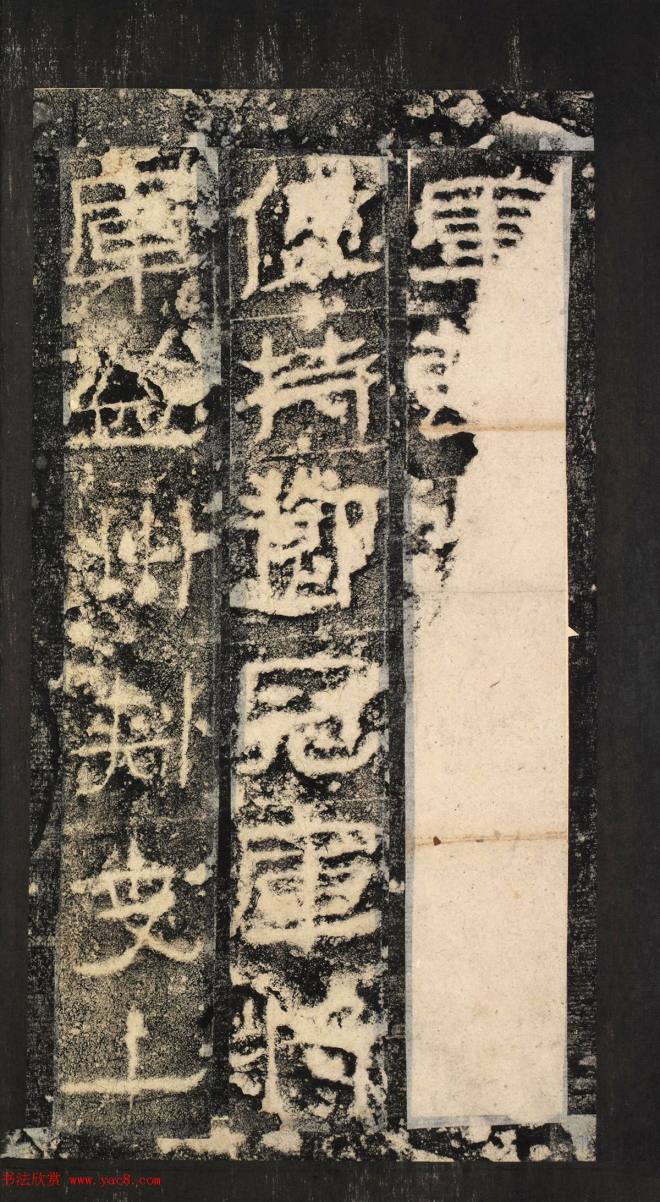 使持節冠軍將
軍益州刺史上
书法欣赏 www.yac8.com